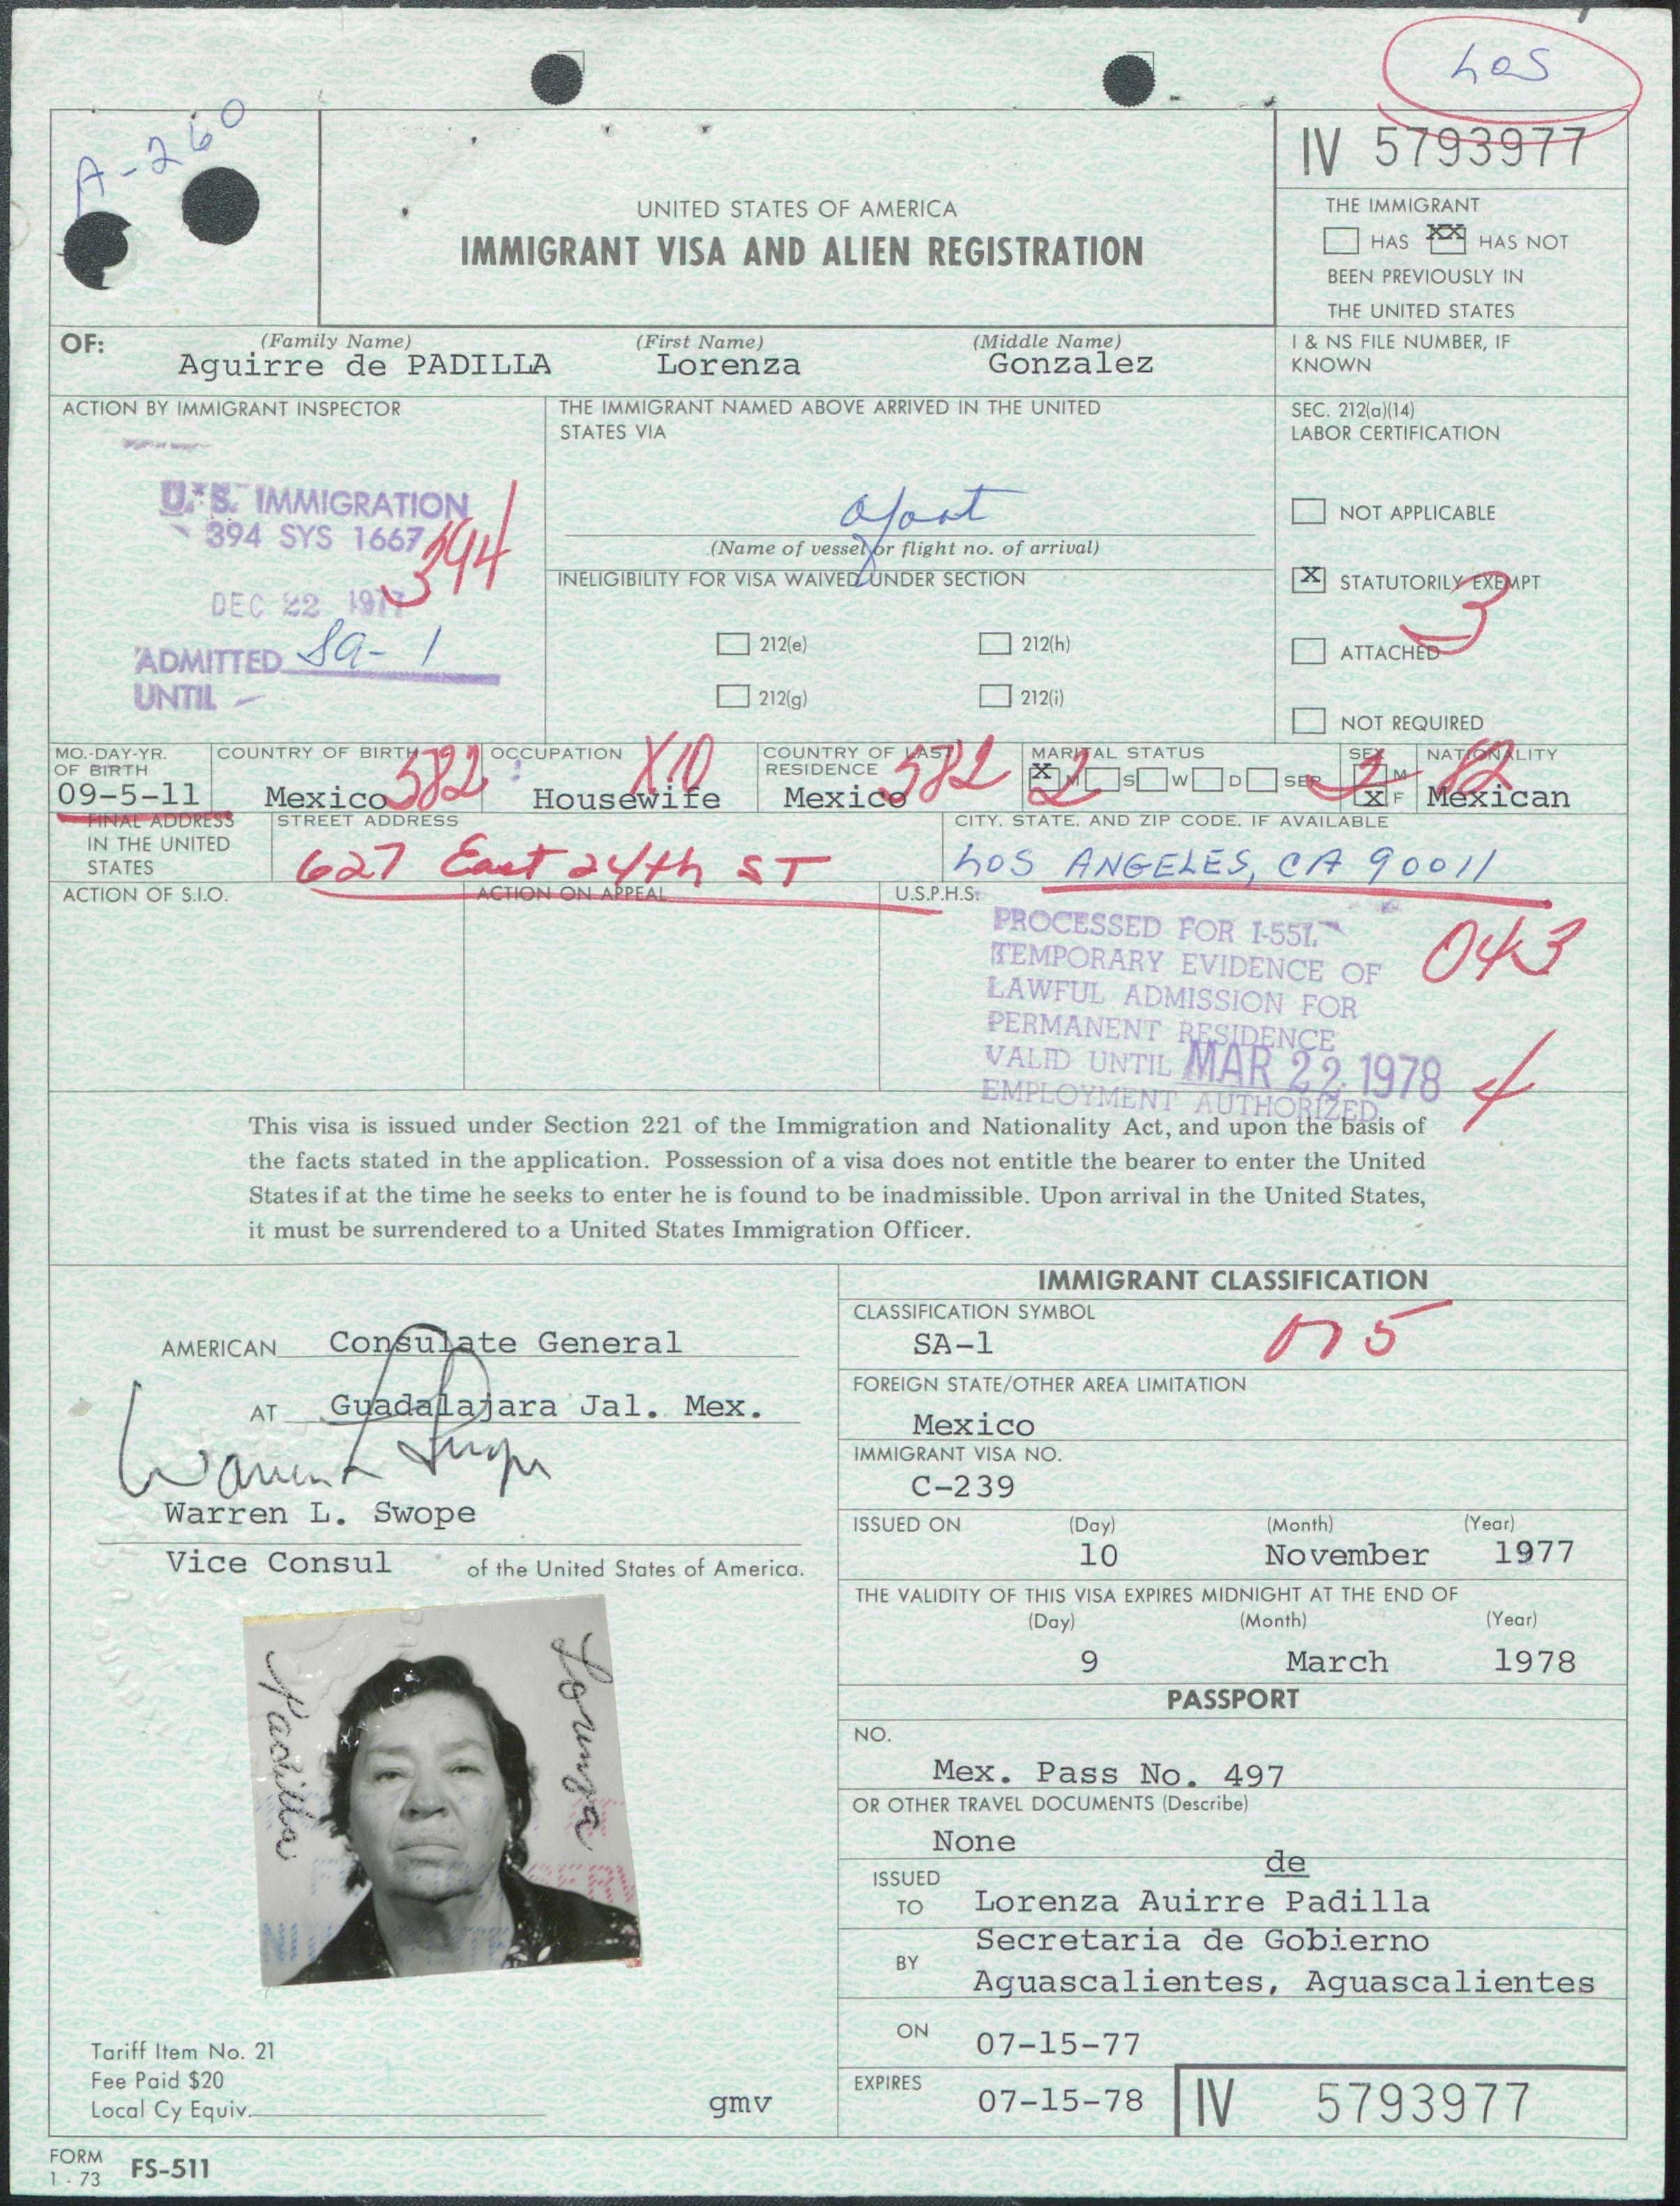 Los
A-260
IV 5793977
UNITED STATES OF AMERICA
IMMIGRANT VISA AND ALIEN REGISTRATION
THE IMMIGRANT
HAS XX HAS NOT
BEEN PREVIOUSLY IN
THE UNITED STATES
OF: (Family Name) (First Name) (Middle Name)
Aguirre de PADILLA Lorenza Gonzalez
I & NS FILE NUMBER, IF
KNOWN
ACTION BY IMMIGRANT INSPECTOR
U.S. IMMIGRATION
394 SYS 1667
394
DEC 22 1977
ADMITTED SA-1
UNTIL -
THE IMMIGRANT NAMED ABOVE ARRIVED IN THE UNITED
STATES VIA
afoot
(Name of vessel or flight no. of arrival)
INELIGIBILITY FOR VISA WAIVED UNDER SECTION
212(e) 212(h)
212(g) 212(i)
SEC. 212(a)(14)
LABOR CERTIFICATION
NOT APPLICABLE
X STATUTORILY EXEMPT
3
ATTACHED
NOT REQUIRED
MO.-DAY-YR.
OF BIRTH
09-5-11
COUNTRY OF BIRTH
Mexico 582
OCCUPATION
Housewife X10
COUNTRY OF LAST
RESIDENCE
Mexico 582
MARITAL STATUS
X M S W D SEP
2
SEX
M
X F
2
NATIONALITY
Mexican
FINAL ADDRESS
IN THE UNITED
STATES
STREET ADDRESS
627 East 24th ST
CITY, STATE, AND ZIP CODE, IF AVAILABLE
LOS ANGELES, CA 90011
ACTION OF S.I.O.
ACTION ON APPEAL
U.S.P.H.S.
PROCESSED FOR I-551.
TEMPORARY EVIDENCE OF
LAWFUL ADMISSION FOR
PERMANENT RESIDENCE
VALID UNTIL MAR 22 1978
EMPLOYMENT AUTHORIZED
043
4
This visa is issued under Section 221 of the Immigration and Nationality Act, and upon the basis of
the facts stated in the application. Possession of a visa does not entitle the bearer to enter the United
States if at the time he seeks to enter he is found to be inadmissible. Upon arrival in the United States,
it must be surrendered to a United States Immigration Officer.
AMERICAN Consulate General
AT Guadalajara Jal. Mex.
Warren L Swope
Warren L. Swope
Vice Consul of the United States of America.
Lorenza
Padilla
Tariff Item No. 21
Fee Paid $20
Local Cy Equiv.
gmv
IMMIGRANT CLASSIFICATION
CLASSIFICATION SYMBOL
SA-1
FOREIGN STATE/OTHER AREA LIMITATION
Mexico
IMMIGRANT VISA NO.
C-239
ISSUED ON (Day) (Month) (Year)
10 November 1977
THE VALIDITY OF THIS VISA EXPIRES MIDNIGHT AT THE END OF
(Day) (Month) (Year)
9 March 1978
PASSPORT
NO.
Mex. Pass No. 497
OR OTHER TRAVEL DOCUMENTS (Describe)
None
ISSUED
TO
de
Lorenza Auirre Padilla
BY
Secretaria de Gobierno
Aguascalientes, Aguascalientes
ON
07-15-77
EXPIRES
07-15-78
IV 5793977
FORM
1-73
FS-511